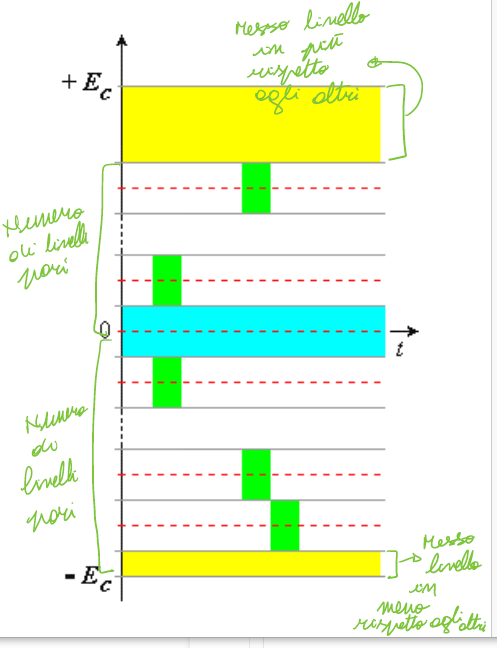 Mezzo livello
in più
rispetto
agli altri
+ Ec
Numero
di livelli
pari
0
t
Numero
di
livelli
pari
- Ec
Mezzo
livello
in
meno
rispetto agli altri